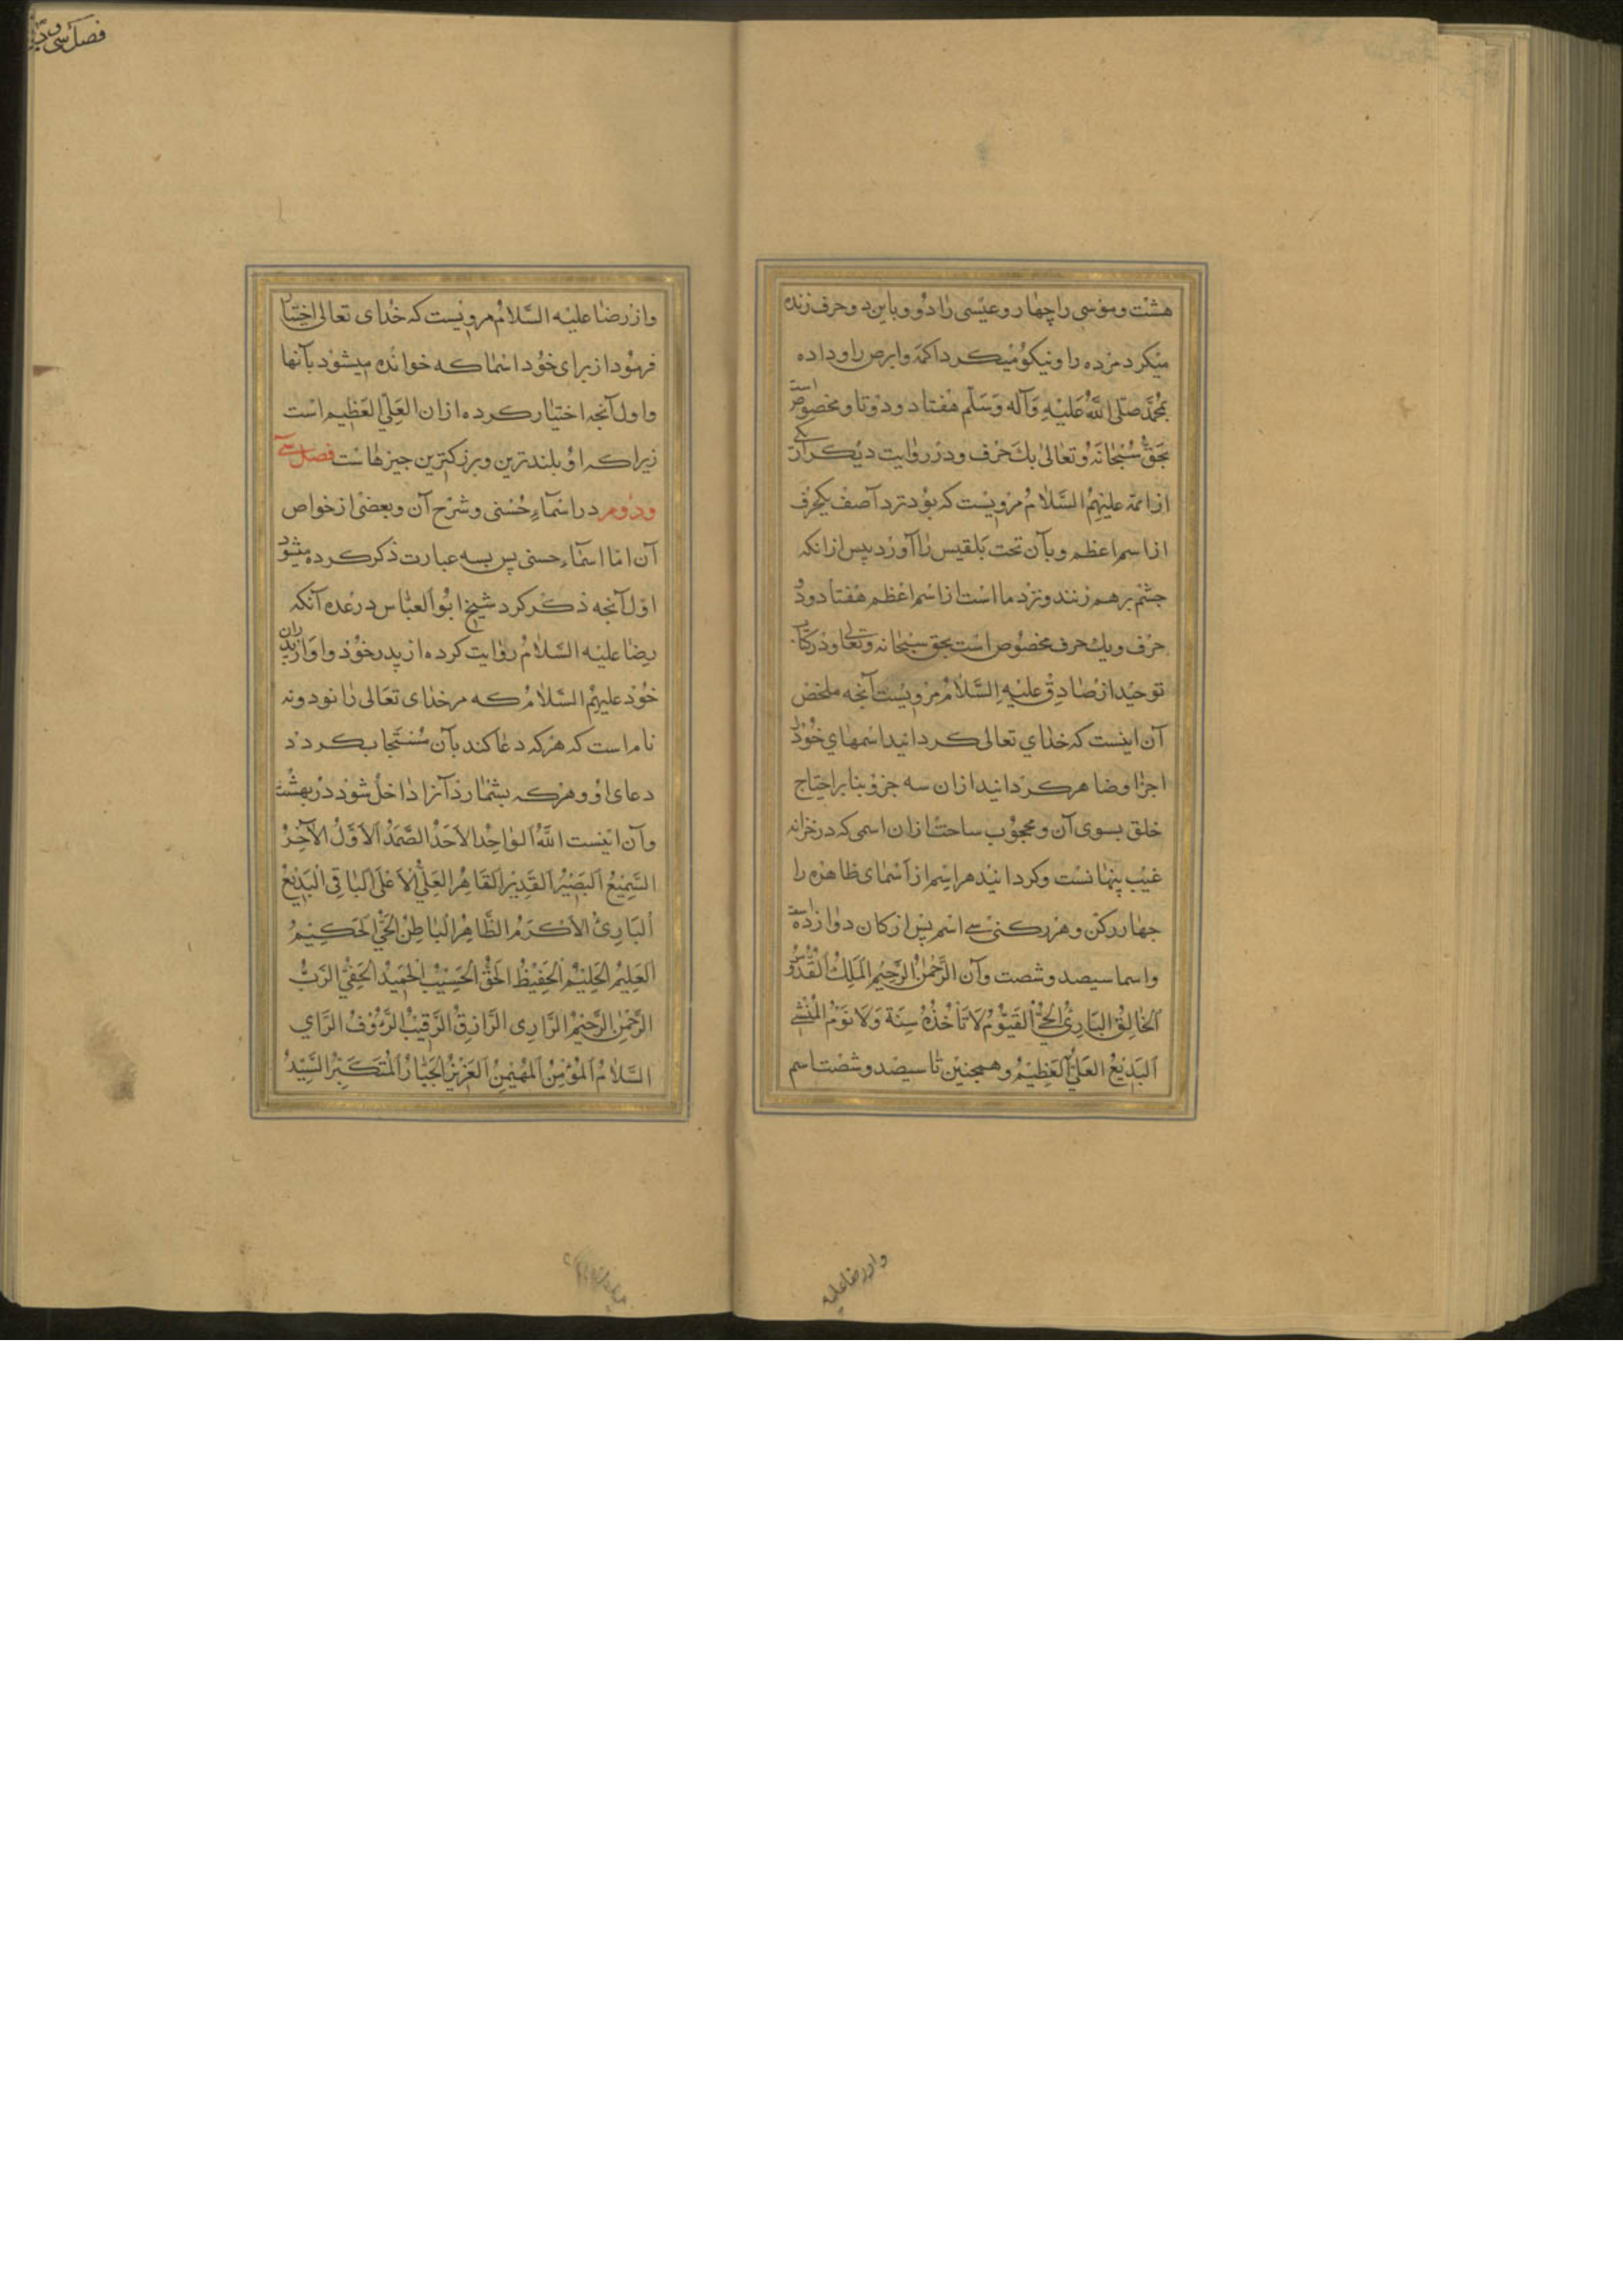 هشت وموسی را چهار وعیسی را دو وباین دو حرف زنده
میکرد مرده را ونیکو میکرد اکمه وابرص را وداده
بمحمد صلی الله علیه وآله وسلم هفتاد ودو تا ومخصوص است
بحق سبحانه وتعالی یک حرف ودر روایت دیگر از یکی
از ائمه علیهم السلام مرویست که بود نزد آصف یکحرف
از اسم اعظم وبآن تخت بلقیس را آورد پیش ازانکه
چشم برهم زنند ونزد ما است از اسم اعظم هفتاد ودو
حرف ویک حرف مخصوص است بحق سبحانه وتعالی ودر کتاب
توحید از صادق علیه السلام مرویست آنچه ملخص
آن اینست که خدای تعالی کردانید اسمهای خود را
اجزا وضاهر کردانید ازان سه جزو بنا بر احتیاج
خلق بسوی آن ومحجوب ساخت ازان اسمی که در خزانه
غیب پنهانست وکردانید هر اسم از اسمای ظاهره را
چهار رکن وهر رکنی سی اسم پس ارکان دوازده است
واسما سیصد وشصت وآن الرحمن الرحیم الملک القدوس
الخالق البارئ الحی القیوم لا تأخذه سنة ولا نوم المنشی
البدیع العلی العظیم وهمچنین تا سیصد وشصت اسم
وازرضا علیه
فصل سی و
واز رضا علیه السلام مرویست که خدای تعالی اختیار
فرمود از برای خود اسما که خوانده میشود بآنها
واول آنچه اختیار کرده ازان العلی العظیم است
زیرا که او بلندترین وبزرکترین چیزهاست فصل سی
ودوم در اسماء حسنی وشرح آن وبعضی از خواص
آن اما اسماء حسنی پس بسه عبارت ذکر کرده میشود
اول آنچه ذکر کرد شیخ ابو العباس در عده آنکه
رضا علیه السلام روایت کرده از پدر خود واو از پدران
خود علیهم السلام که مر خدای تعالی را نود ونه
نام است که هر که دعا کند بآن مستجاب کردد
دعای او وهر که بشمارد آنرا داخل شود در بهشت
وآن اینست الله الواحد الاحد الصمد الاول الآخر
السمیع البصیر القدیر القاهر العلی الاعلی الباقی البدیع
البارئ الاکرم الظاهر الباطن الحی الحکیم
العلیم الحلیم الحفیظ الحق الحسیب الحمید الحفی الرب
الرحمن الرحیم الزاری الرازق الرقیب الرؤوف الرای
السلام المؤمن المهیمن العزیز الجبار المتکبر السید